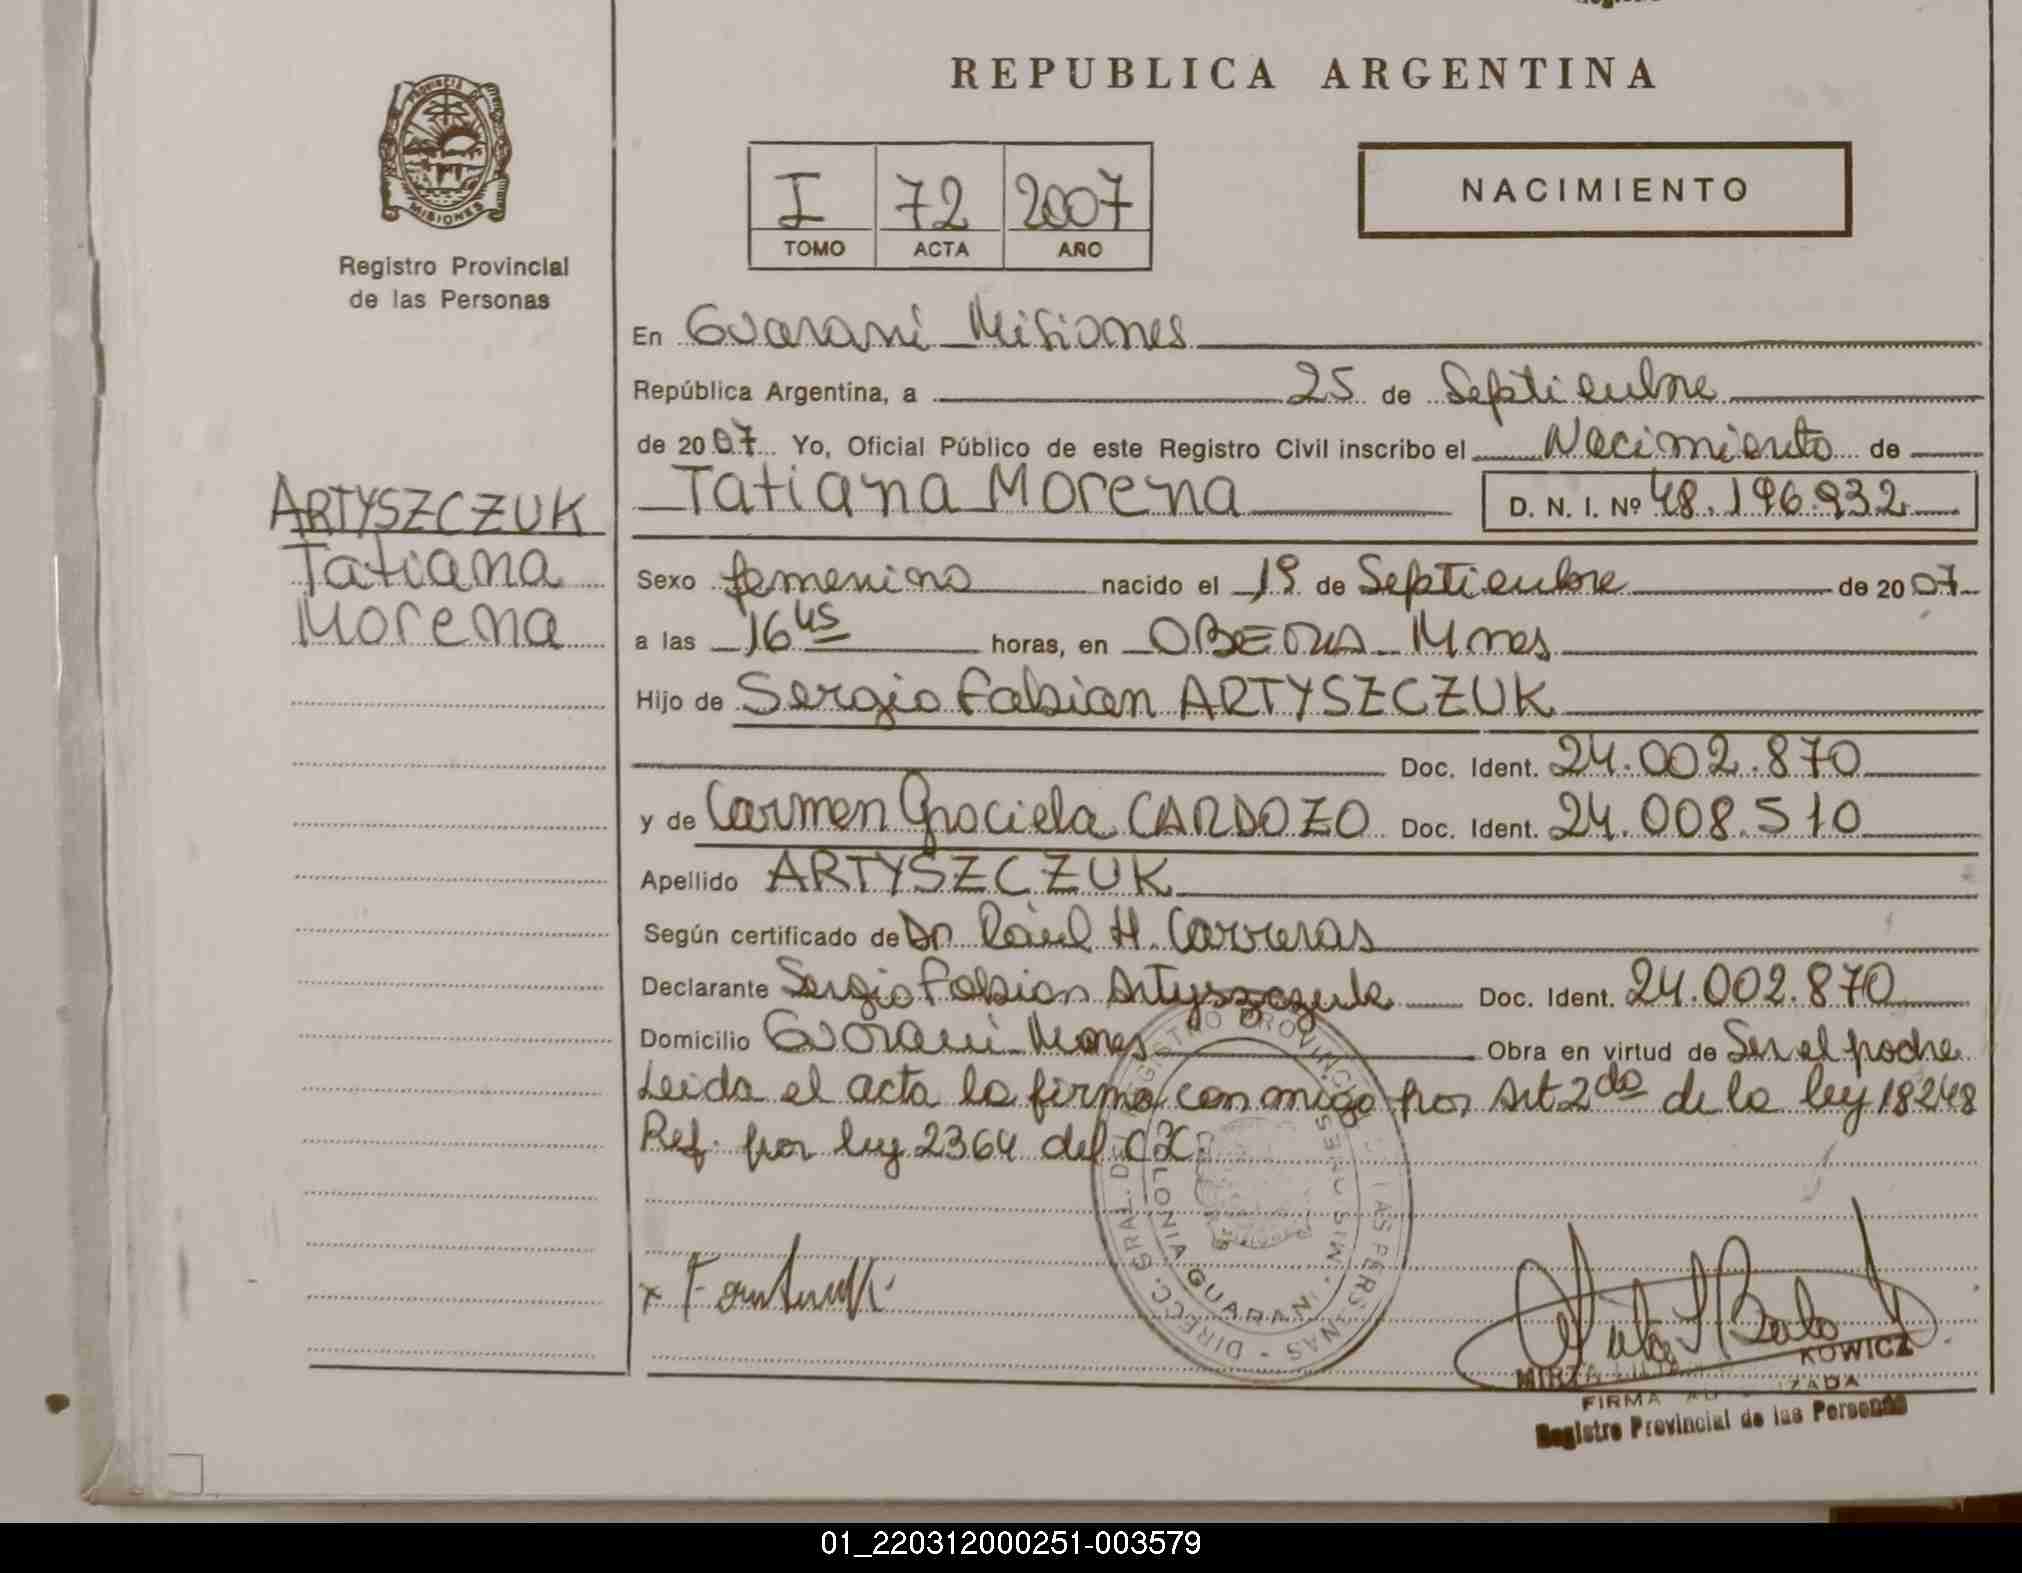 REPUBLICA ARGENTINA
PROVINCIA DE
MISIONES
Registro Provincial
de las Personas
I 72 2007
TOMO ACTA AÑO
NACIMIENTO
En Guarani Misiones
República Argentina, a 25 de Septiembre
de 2007 Yo, Oficial Público de este Registro Civil inscribo el Nacimiento de
Tatiana Morena D. N. I. Nº 48.196.932
ARTYSZCZUK
Tatiana
Morena
Sexo femenino nacido el 19 de Septiembre de 2007
a las 16 45 horas, en OBERA Mnes
Hijo de Sergio Fabian ARTYSZCZUK
Doc. Ident. 24.002.870
y de Carmen Graciela CARDOZO Doc. Ident. 24.008.510
Apellido ARTYSZCZUK
Según certificado de Dr. Raúl H. Carreras
Declarante Sergio Fabian Artyszczuk Doc. Ident. 24.002.870
Domicilio Guarani Mnes Obra en virtud de Ser el padre
Leida el acta la firma con migo por Art 2do de la ley 18248
Ref. por ley 2364 del CC.
DIRECC. GRAL. DEL REGISTRO PROVINCIAL DE LAS PERSONAS
COLONIA GUARANI MISIONES
KOWICZ
FIRMA
Registro Provincial de las Personas
01_220312000251-003579